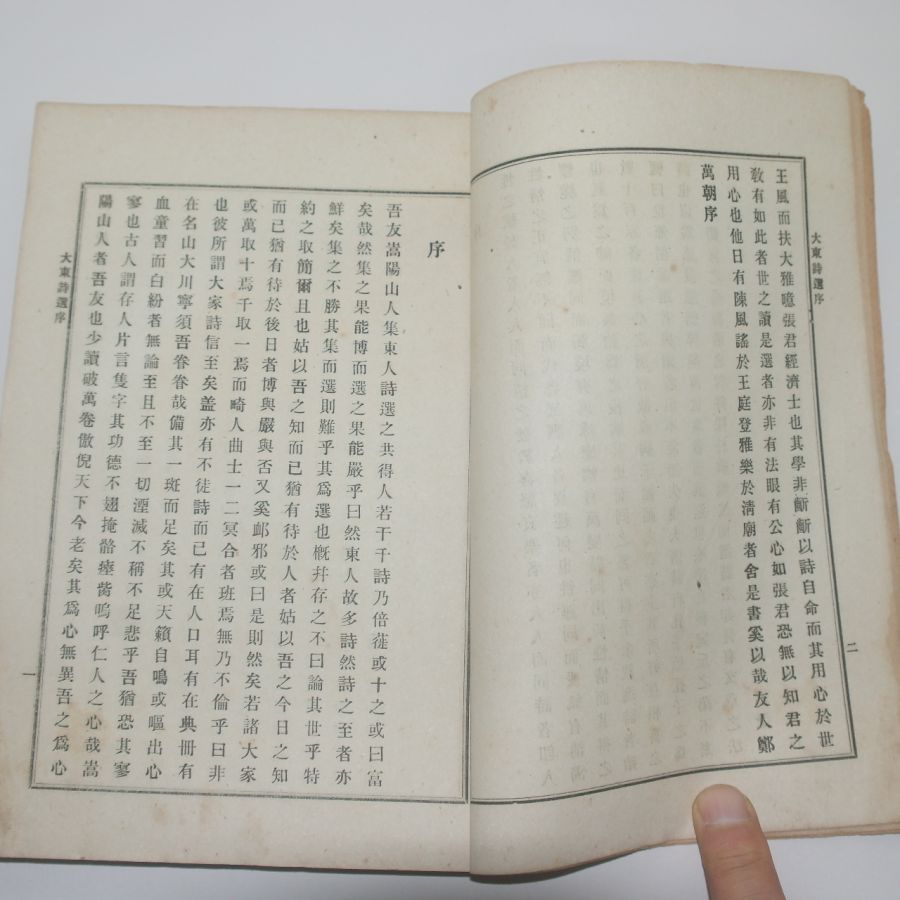 大東詩選序
二
王風而扶大雅噫張君經濟士也其學非齗齗以詩自命而其用心於世
敎有如此者世之讀是選者亦非有法眼有公心如張君恐無以知君之
用心也他日有陳風謠於王庭登雅樂於淸廟者舍是書奚以哉友人鄭
萬朝序
序
吾友嵩陽山人集東人詩選之共得人若干千詩乃倍蓰或十之或曰富
矣哉然集之果能博而選之果能嚴乎曰然東人故多詩然詩之至者亦
鮮矣集之不勝其集而選則難乎其爲選也槪幷存之不曰論其世乎特
約之取簡爾且也姑以吾之知而已猶有待於人者姑以吾之今日之知
而已猶有待於後日者博與嚴與否又奚邮邪或曰是則然矣若諸大家
或萬取十焉千取一焉而畸人曲士一二冥合者班焉無乃不倫乎曰非
也彼所謂大家詩信至矣盖亦有不徒詩而已有在人口耳有在典冊有
在名山大川寧須吾眷眷哉備其一斑而足矣其或天籟自鳴或嘔出心
血童習而白紛者無論至且不至一切湮滅不稱不足悲乎吾猶恐其寥
寥也古人謂存人片言隻字其功德不翅掩骼瘞胔嗚呼仁人之心哉嵩
陽山人者吾友也少讀破萬卷傲倪天下今老矣其爲心無異吾之爲心
大東詩選序
一